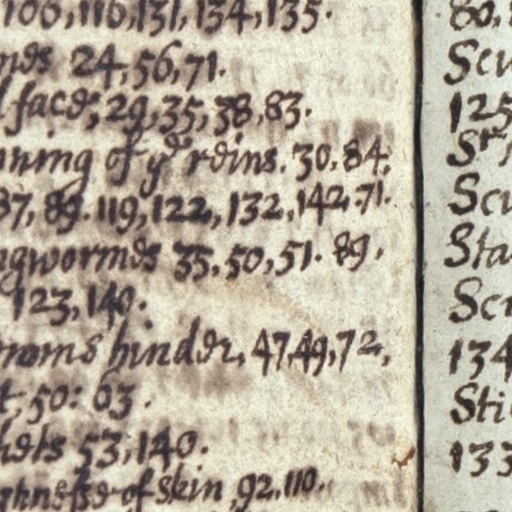 106, 116, 131, 134, 135.
nds 24, 56, 71.
d face, 29, 35, 38, 83.
nning of ye reins. 30. 84.
37, 89. 119, 122, 132, 142. 71.
ngwormes 35. 50, 51. 89.
123, 140.
hinder, 47, 49, 72,
t, 50: 63.
kets 53, 140.
ghnesse of skin 92. 110.
80,
Scu
125
Sr
Scu
Sta
Scr
134
Sti
133